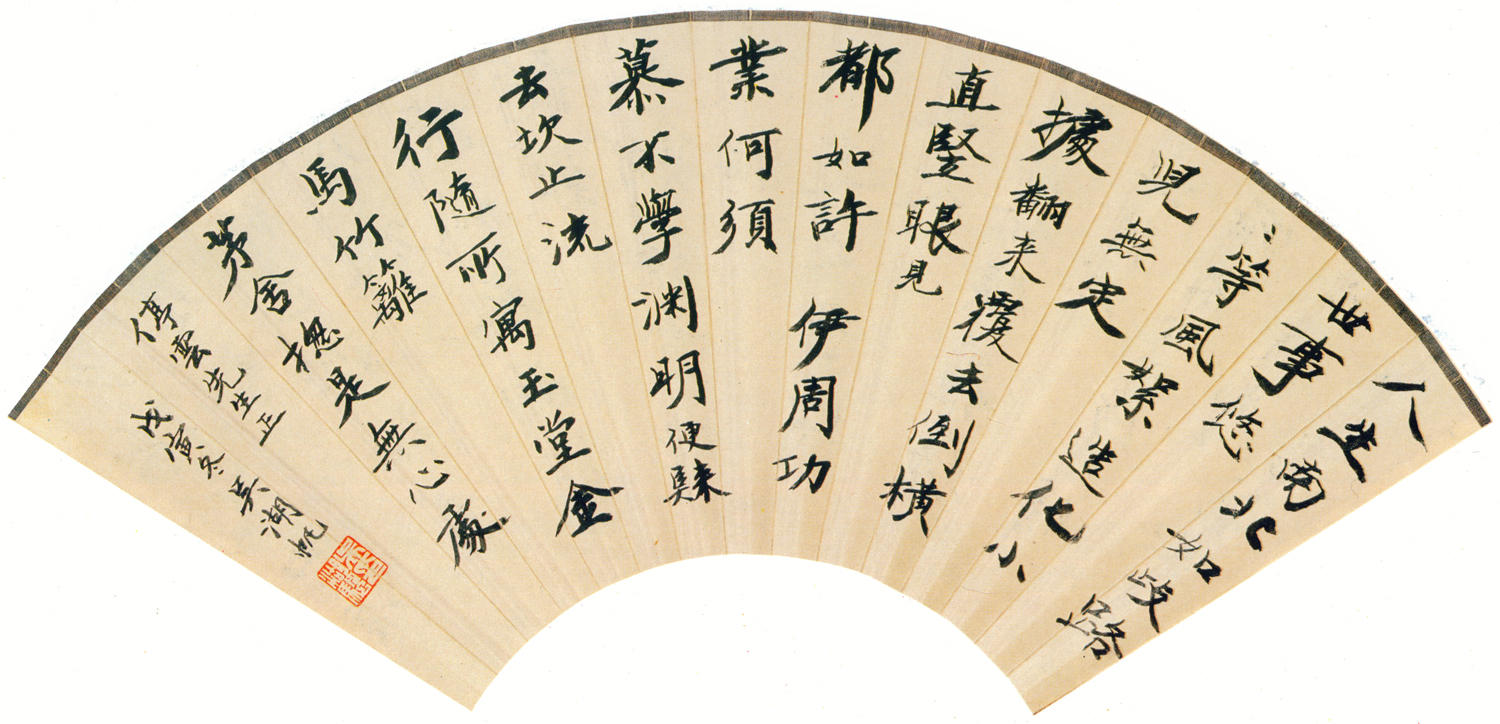 人生南北如歧路
世事悠
〻等風絮造化小
兒無定
據翻来覆去倒橫
直豎眼見
都如許伊周功
業何須
慕不學渊明便歸
去坎止流
行隨所寓玉堂金
馬竹籬
茅舍揔是無心處
停雲先生正
戊寅冬吳湖帆